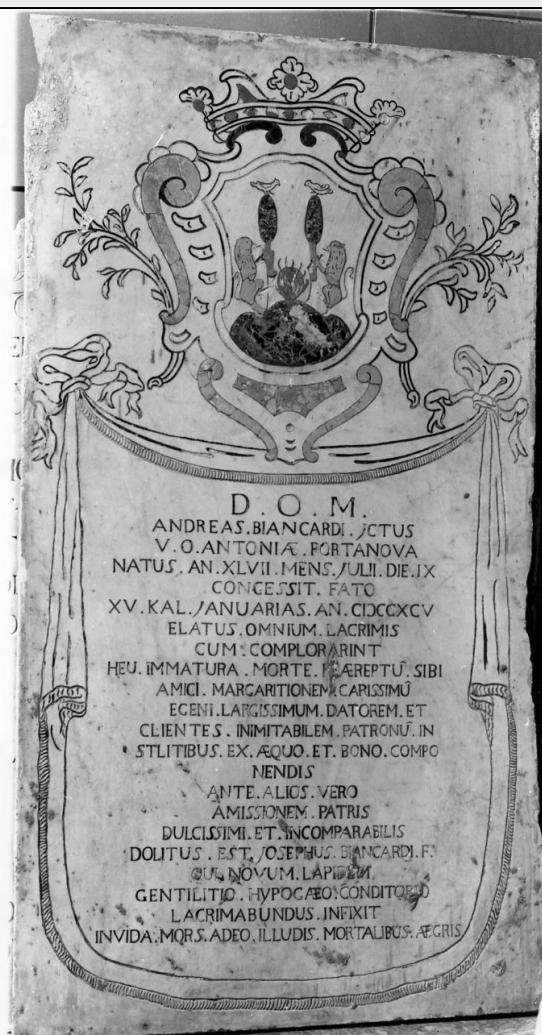 D. O. M.
ANDREAS. BIANCARDI. JCTUS
V. O. ANTONIÆ. PORTANOVA
NATUS. AN. XLVII. MENS. JULII. DIE. IX
CONCESSIT. FATO
XV. KAL. JANUARIAS. AN. CIƆCCXCV
ELATUS. OMNIUM. LACRIMIS
CUM. COMPLORARINT
HEU. IMMATURA. MORTE. PRÆREPTŪ. SIBI
AMICI. MARGARITIONEM. CARISSIMŪ
EGENI. LARGISSIMUM. DATOREM. ET
CLIENTES. INIMITABILEM. PATRONŪ. IN
STLITIBUS. EX. ÆQUO. ET. BONO. COMPO
NENDIS
ANTE. ALIOS. VERO
AMISSIONEM. PATRIS
DULCISSIMI. ET. INCOMPARABILIS
DOLITUS. EST. JOSEPHUS. BIANCARDI. F.
QUI. NOVUM. LAPIDEM
GENTILITIO. HYPOGÆO. CONDITORIO
LACRIMABUNDUS. INFIXIT
INVIDA. MORS. ADEO. ILLUDIS. MORTALIBUS. ÆGRIS